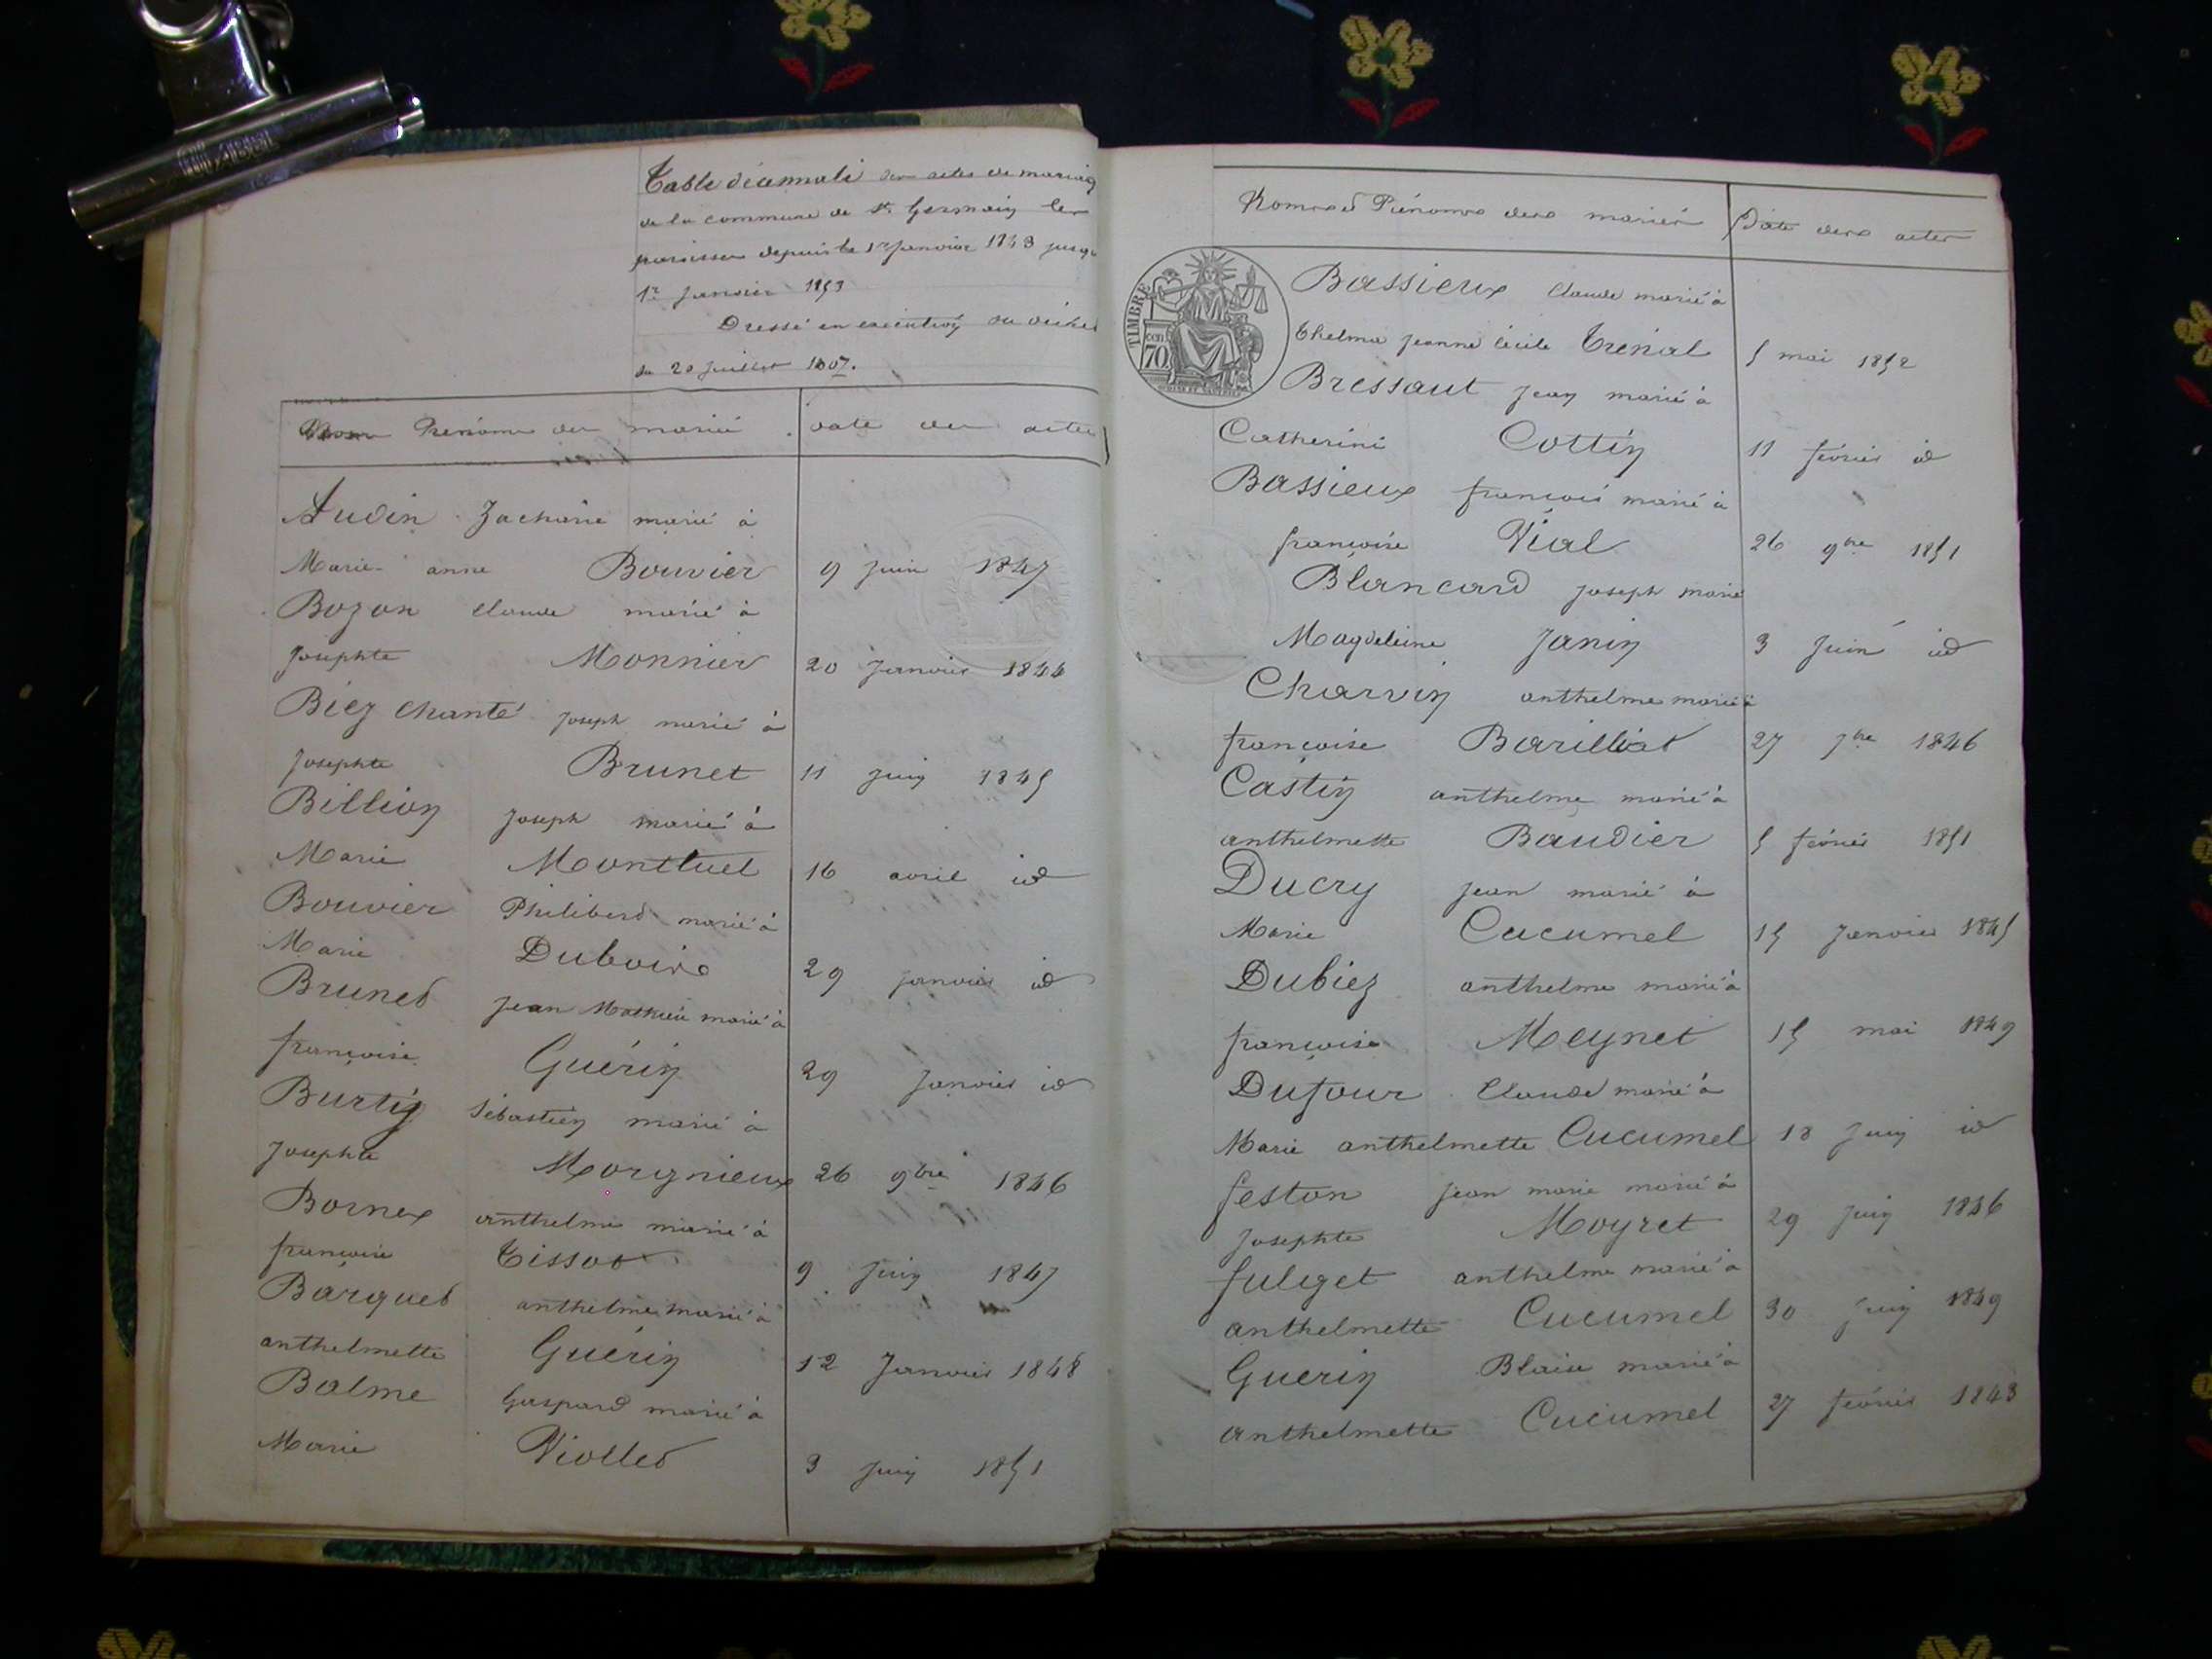 Table décennale des actes de mariage
de la commune de St Germain les
paroisses depuis le 1er Janvier 1843 jusqu
1er Janvier 1853
Dressé en exécution du décret
du 20 Juillet 1807.
Prénoms des mariés
date des actes
Audin Zacharie marié à
Marie anne Bouvier 9 juin 1847
Bozon Claude marié à
Josephte Monnier 20 Janvier 1844
Biez chanté joseph marié à
Josephte Brunet 11 juin 1845
Billion joseph marié à
Marie Montluel 16 avril id
Bouvier Philiberd marié à
Marie Dubois 29 janvier id
Brunet jean Mathieu marié à
françoise Guérin 29 janvier id
Burtin Sébastien marié à
Josephte Morgnieux 26 9bre 1846
Bornex anthelme marié à
françoise Tissot 9 juin 1847
Barquet anthelme marié à
anthelmette Guérin 12 Janvier 1848
Balme Gaspard marié à
Marie Viollet 3 juin 1851
Noms et Prénoms des mariés
Date des actes
TIMBRE
70
Bassieux Claude marié à
thelma jeanne Cécile Trénal 5 mai 1852
Bressaut jean marié à
Catherine Cottin 11 février id
Bassieux françois marié à
françoise Vial 26 9bre 1851
Blancard joseph marié
Magdeleine Janin 3 Juin id
Charvin anthelme marié à
françoise Barilliot 27 7bre 1846
Castin anthelme marié à
anthelmette Baudier 5 février 1851
Ducry jean marié à
Marie Cucumel 15 janvier 1845
Dubiez anthelme marié à
françoise Meynet 15 mai 1849
Dufour Claude marié à
Marie anthelmette Cucumel 18 juin id
feston jean marie marié à
Josephte Moyret 29 juin 1846
fulget anthelme marié à
anthelmette Cucumel 30 juin 1849
Guerin Blaise marié à
anthelmette Cucumel 27 février 1843